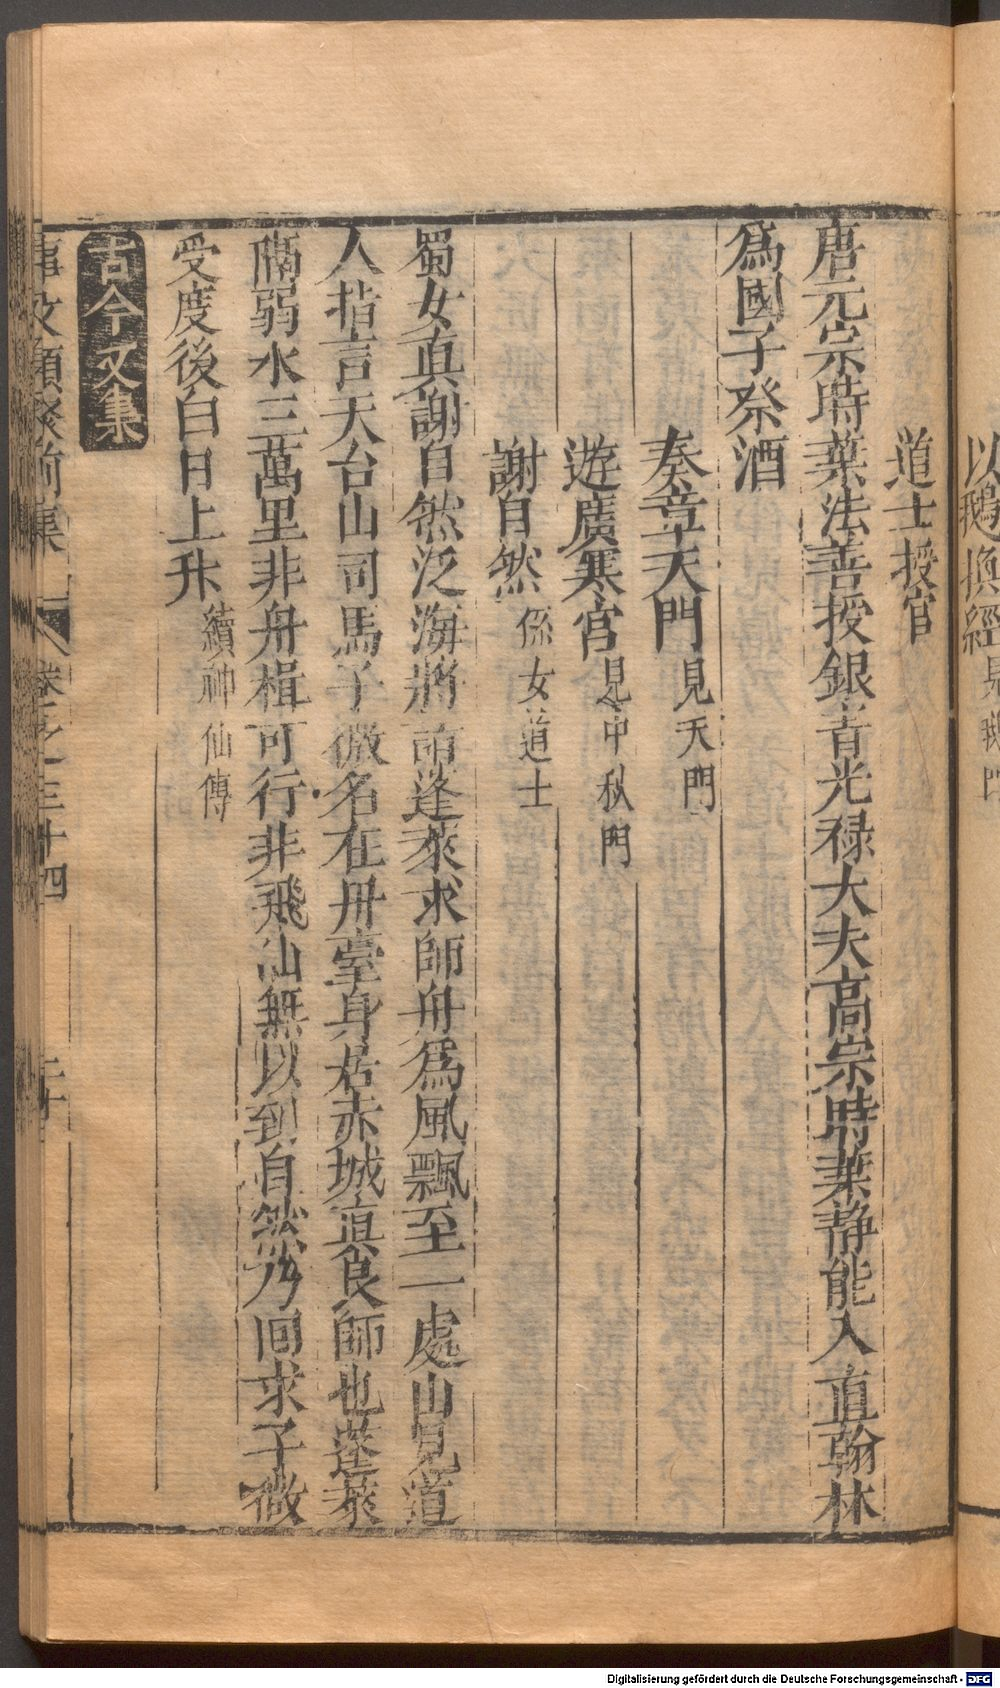 以鵝換經見鵝門
道士授官
唐元宗時葉法善授銀青光祿大夫高宗時葉静能入直翰林
為國子祭酒
奏章天門見天門
遊廣寒宮見中秋門
謝自然係女道士
蜀女真謝自然泛海將詣蓬萊求師舟為風飄至一處山見道
人指言天台山司馬子微名在丹臺身居赤城真良師也蓬萊
隔弱水三萬里非舟楫可行非飛仙無以到自然乃回求子微
受度後白日上升續神仙傳
古今文集
事文類聚前集 卷之三十四 二十
Digitalisierung gefördert durch die Deutsche Forschungsgemeinschaft - DFG